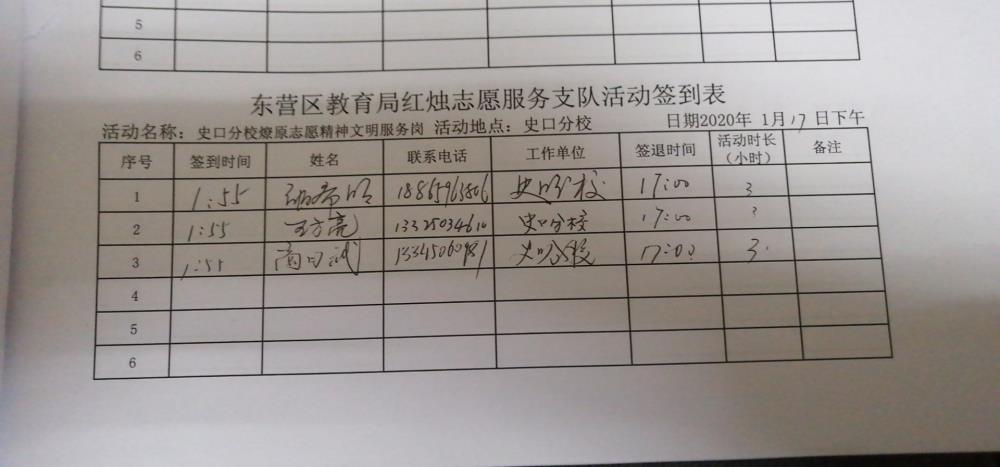 5
6
东营区教育局红烛志愿服务支队活动签到表
活动名称： 史口分校燎原志愿精神文明服务岗 活动地点：史口分校 日期2020年 1月17 日下午
序号 签到时间 姓名 联系电话 工作单位 签退时间 活动时长（小时） 备注
1 1:55 史口分校 17:00 3
2 1:55 王方亮 13325034610 史口分校 17:00 3
3 1:55 史口分校 17:00 3
4
5
6